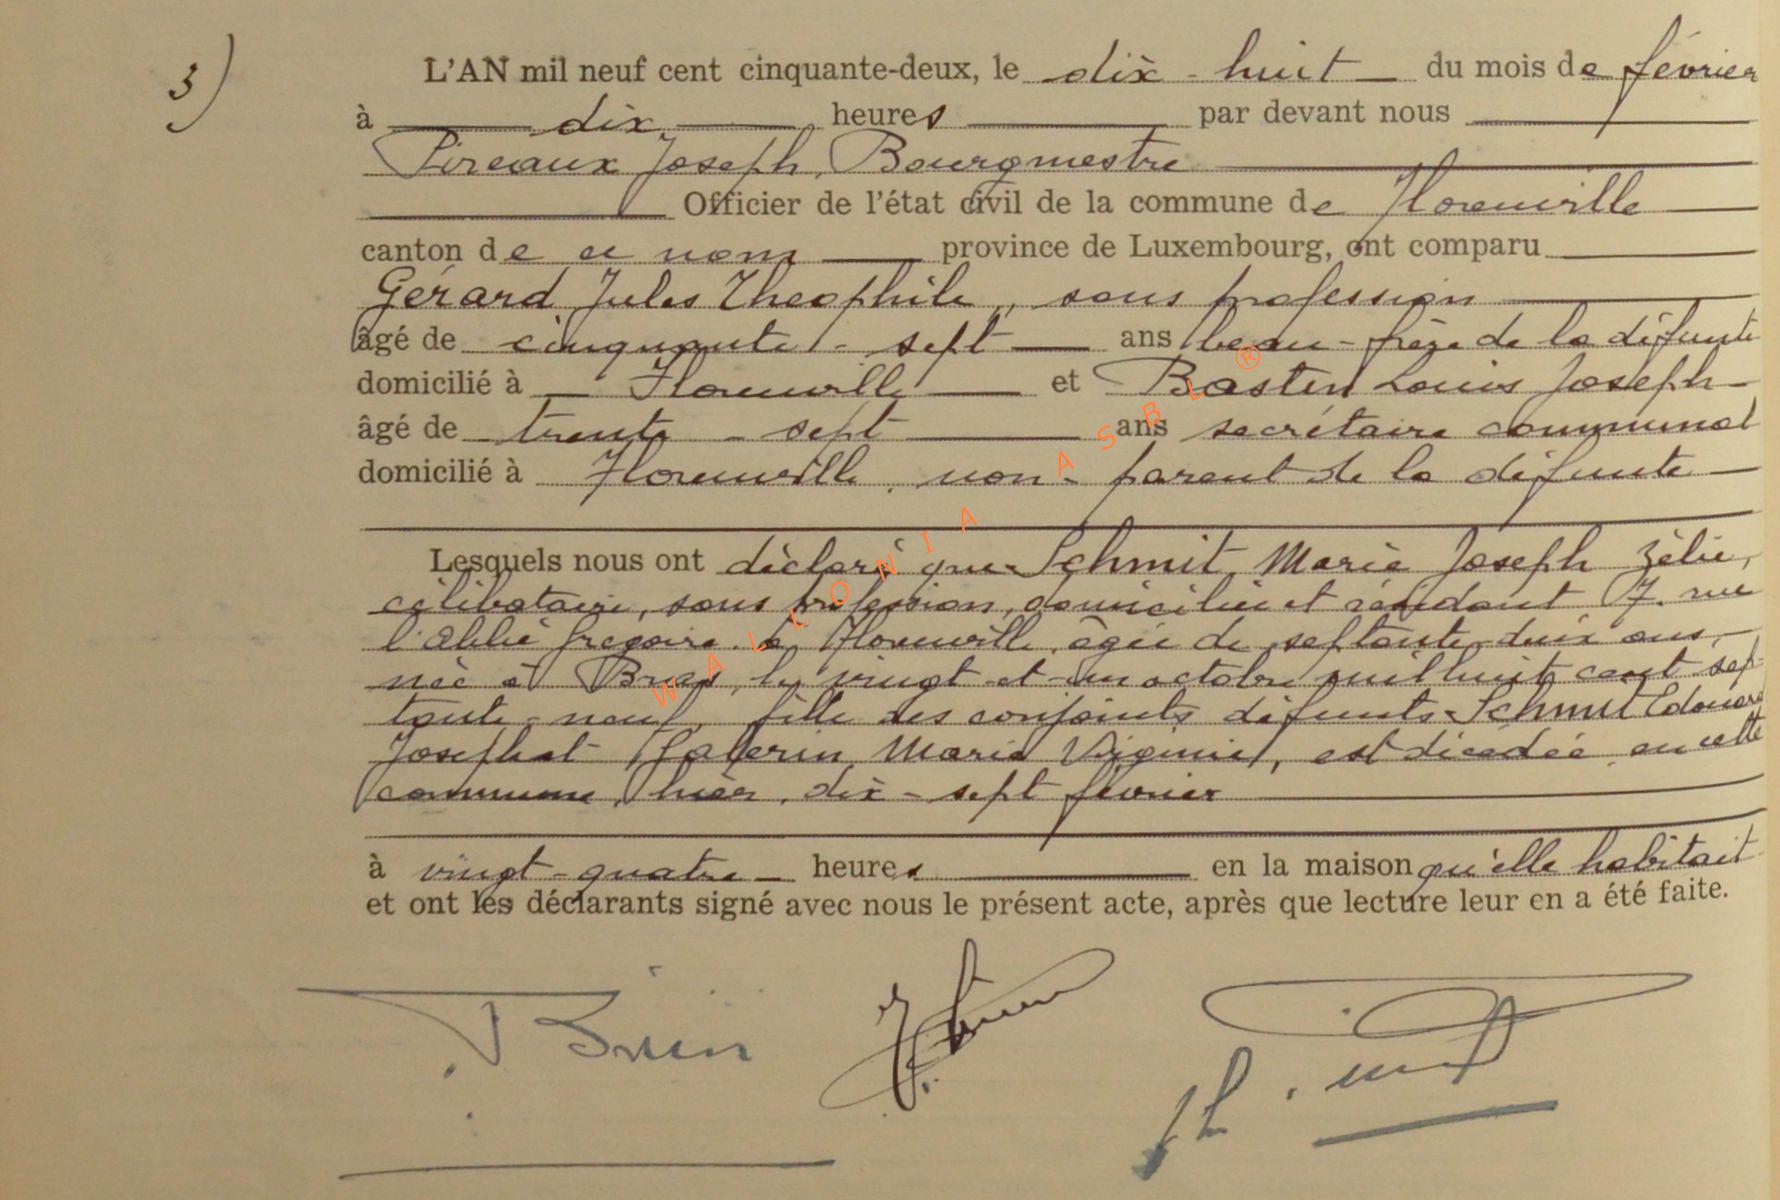 3)
L'AN mil neuf cent cinquante-deux, le dix-huit du mois de février
à dix heures par devant nous
Pireaux Joseph, Bourgmestre
Officier de l'état civil de la commune de Florenville
canton de ce nom province de Luxembourg, ont comparu
Gérard Jules Théophile, sans profession
âgé de cinquante-sept ans beau-frère de la défunte
domicilié à Florenville et Bastin Louis Joseph
âgé de trente-sept ans secrétaire communal
domicilié à Florenville, non-parent de la défunte
Lesquels nous ont déclaré que Schmit Marie Joseph Zélie,
célibataire, sans profession, domiciliée et résidant 7, rue
l'abbé Grégoire à Florenville, âgée de septante-deux ans,
née à le vingt-et-un octobre mil huit cent sep-
tante-neuf, fille des conjoints défunts Schmit Edouard
Joseph et Marie Virginie, est décédée en cette
commune, hier, dix-sept février
à vingt-quatre heures en la maison qu'elle habitait
et ont les déclarants signé avec nous le présent acte, après que lecture leur en a été faite.
WALLONIA ASBL ®